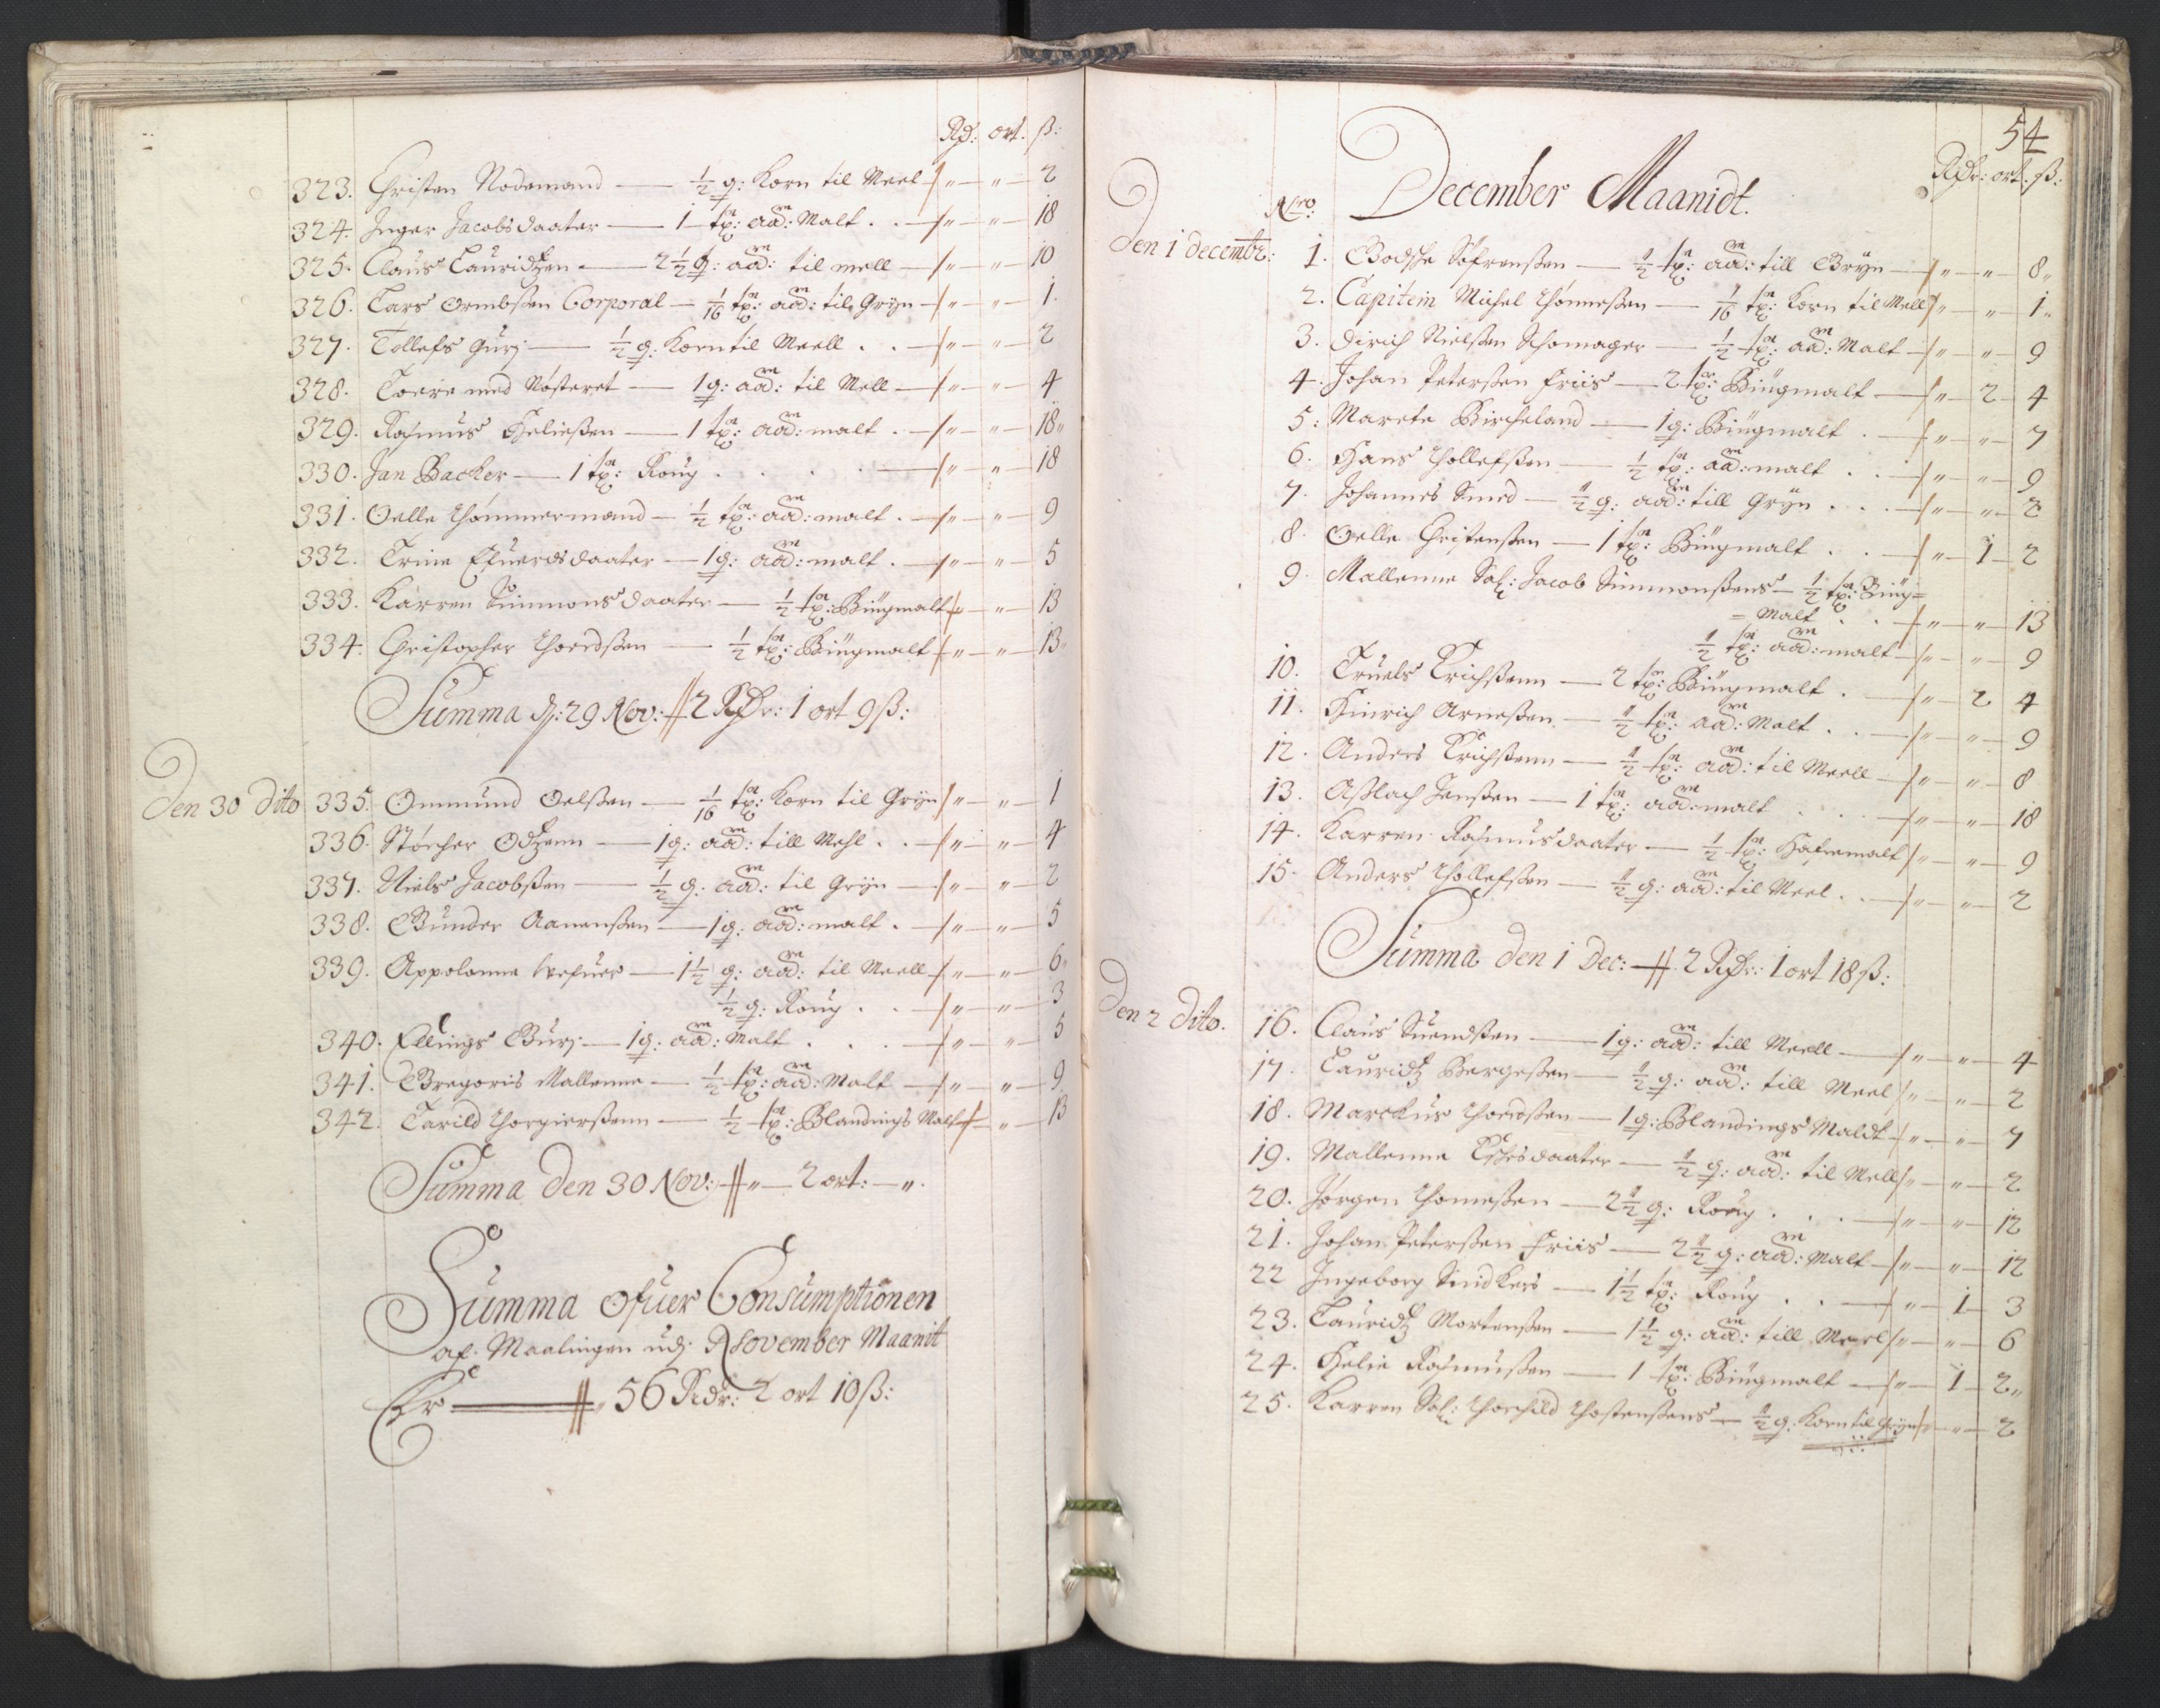 Rd: ort. ß:
323. Christen Rodemand — ½ q: Korn til Meel — " — " — 2
324. Inger Jacobsdaater — 1 tr: ad: Malt . — " — " — 18
325. Claus Lauridtzen — 2½ q: ad: til mell — " — " — 10
326. Lars Ormbßen Corporal — 1/16 tr: ad: til Gryn — " — " — 1.
327. Tollefs Gurj — ½ q: Korn til Meell . . — " — " — 2
328. Tore med Nøsteret — 1 q: ad: til Mell — " — " — 4
329. Rasmus Heließen — 1 tr: ad: malt . — " — " — 18"
330. Jan Backer — 1 tr: Roug . . . . — " — " — 18
331. Oelle Thømmermand — ½ tr: ad: malt . — " — " — 9
332. Trine Efuerdsdaater — 1 q: ad: malt . — " — " — 5
333. Karren Simmonsdaater — ½ tr: Biugmalt — " — " — 13
334. Christopher Thordßen — ½ tr: Biugmalt — " — " — 13"
Summa d: 29 Nov: 2 Rdr: 1 ort 9 ß:
Den 30 Dito
335. Ommund Oelßen — 1/16 tr: Korn til Gryn — " — " — 1
336. Størcher Odtzenn — 1 q: ad: till Mehl . . — " — " — 4
337. Niels Jacobßen — ½ q: ad: til Gryn — " — " — 2
338. Gunder Aanenßen — 1 q: ad: malt . — " — " — 5
339. Appolonna — 1½ q: ad: til Meell — " — " — 6"
½ q: Roug . . — " — " — 3
340. Ellings Gurj — 1 q: ad: Malt . . . — " — " — 5
341. Gregoris Mallenne — ½ tr: ad: Malt — " — " — 9
342. Tarild Thorgierßenn — ½ tr: Blandings Malt — " — " — 13
Summa Den 30 Nov: " — 2 ort: — ".
Summa Ofuer Consumptionen
af Maalingen udj November Maanit
Er — 56 Rdr: 2 ort 10 ß:
54
Rdr: ort: ß:
December Maanidt.
Nro:
Den 1 decembr:
1. Bodsche Søfrenßen — ½ tr: ad: till Gryn — " — " — 8"
2. Capitein Michel Thønneßen — 1/16 tr: Korn til Mell — " — " — 1"
3. Dirich Nielßen Schomager — ½ tr: ad: Malt — " — " — 9
4. Johan Peterßen Friis — 2 tr: Biugmalt — " — 2 — 4
5: Marete Bircheland — 1 q: Biugmalt . — " — " — 7
6. Hans Thollefßen — ½ tr: ad: malt . . — " — " — 9
7. Johannes Smed — ½ q: ad: till Gryn . . . — " — " — 2
8. Oelle Christenßen — 1 tr: Biugmalt . . — " — 1 — 2
9. Mallenne Sal: Jacob Simmonßens — ½ tr: Biug=
= Malt . . — " — " — 13
½ tr: ad: malt — " — " — 9
10. Truels Erichßenn — 2 tr: Biugmalt . — " — 2 4
11. Hinrich Arneßen — ½ tr: ad: Malt . . — " — " — 9
12. Anders Erichßenn — ½ tr: ad: til Meell — " — " — 8
13. Aßlach Jenßen — 1 tr: ad: malt . . . — " — " — 18
14. Karren Rasmusdaater — ½ tr: Hafremalt — " — " — 9
15. Anders Thollefßen — ½ q: ad: til Meel . . — " — " — 2
Summa den 1 Dec: — 2 Rdr: 1 ort 18 ß:
Den 2 Dito.
16. Claus Suendßen — 1 q: ad: till Meell — " — " — 4
17. Lauridtz Bergeßen — ½ q: ad: till Meel — " — " — 2
18. Marckus Thordßen — 1 q: Blandings Maldt — " — " — 7
19. Mallenne Eschesdaater — ½ q: ad: til Mell — " — " — 2
20. Jørgen Thomeßen — 2½ q: Roug . . . — " — " — 12
21. Johan Peterßen Friis — 2½ q: ad: Malt — " — " — 12
22 Ingeborg Snidkers — 1½ tr: Roug . . — " — 1 — 3
23. Lauridtz Mortenßen — 1½ q: ad: till Meel — " — " — 6
24. Helie Rasmußen — 1 tr: Biugmalt — " — 1 — 2"
25. Karren Sal: Thorchild Thostenßens — ½ q. Korn til Gryn — " — " — 2